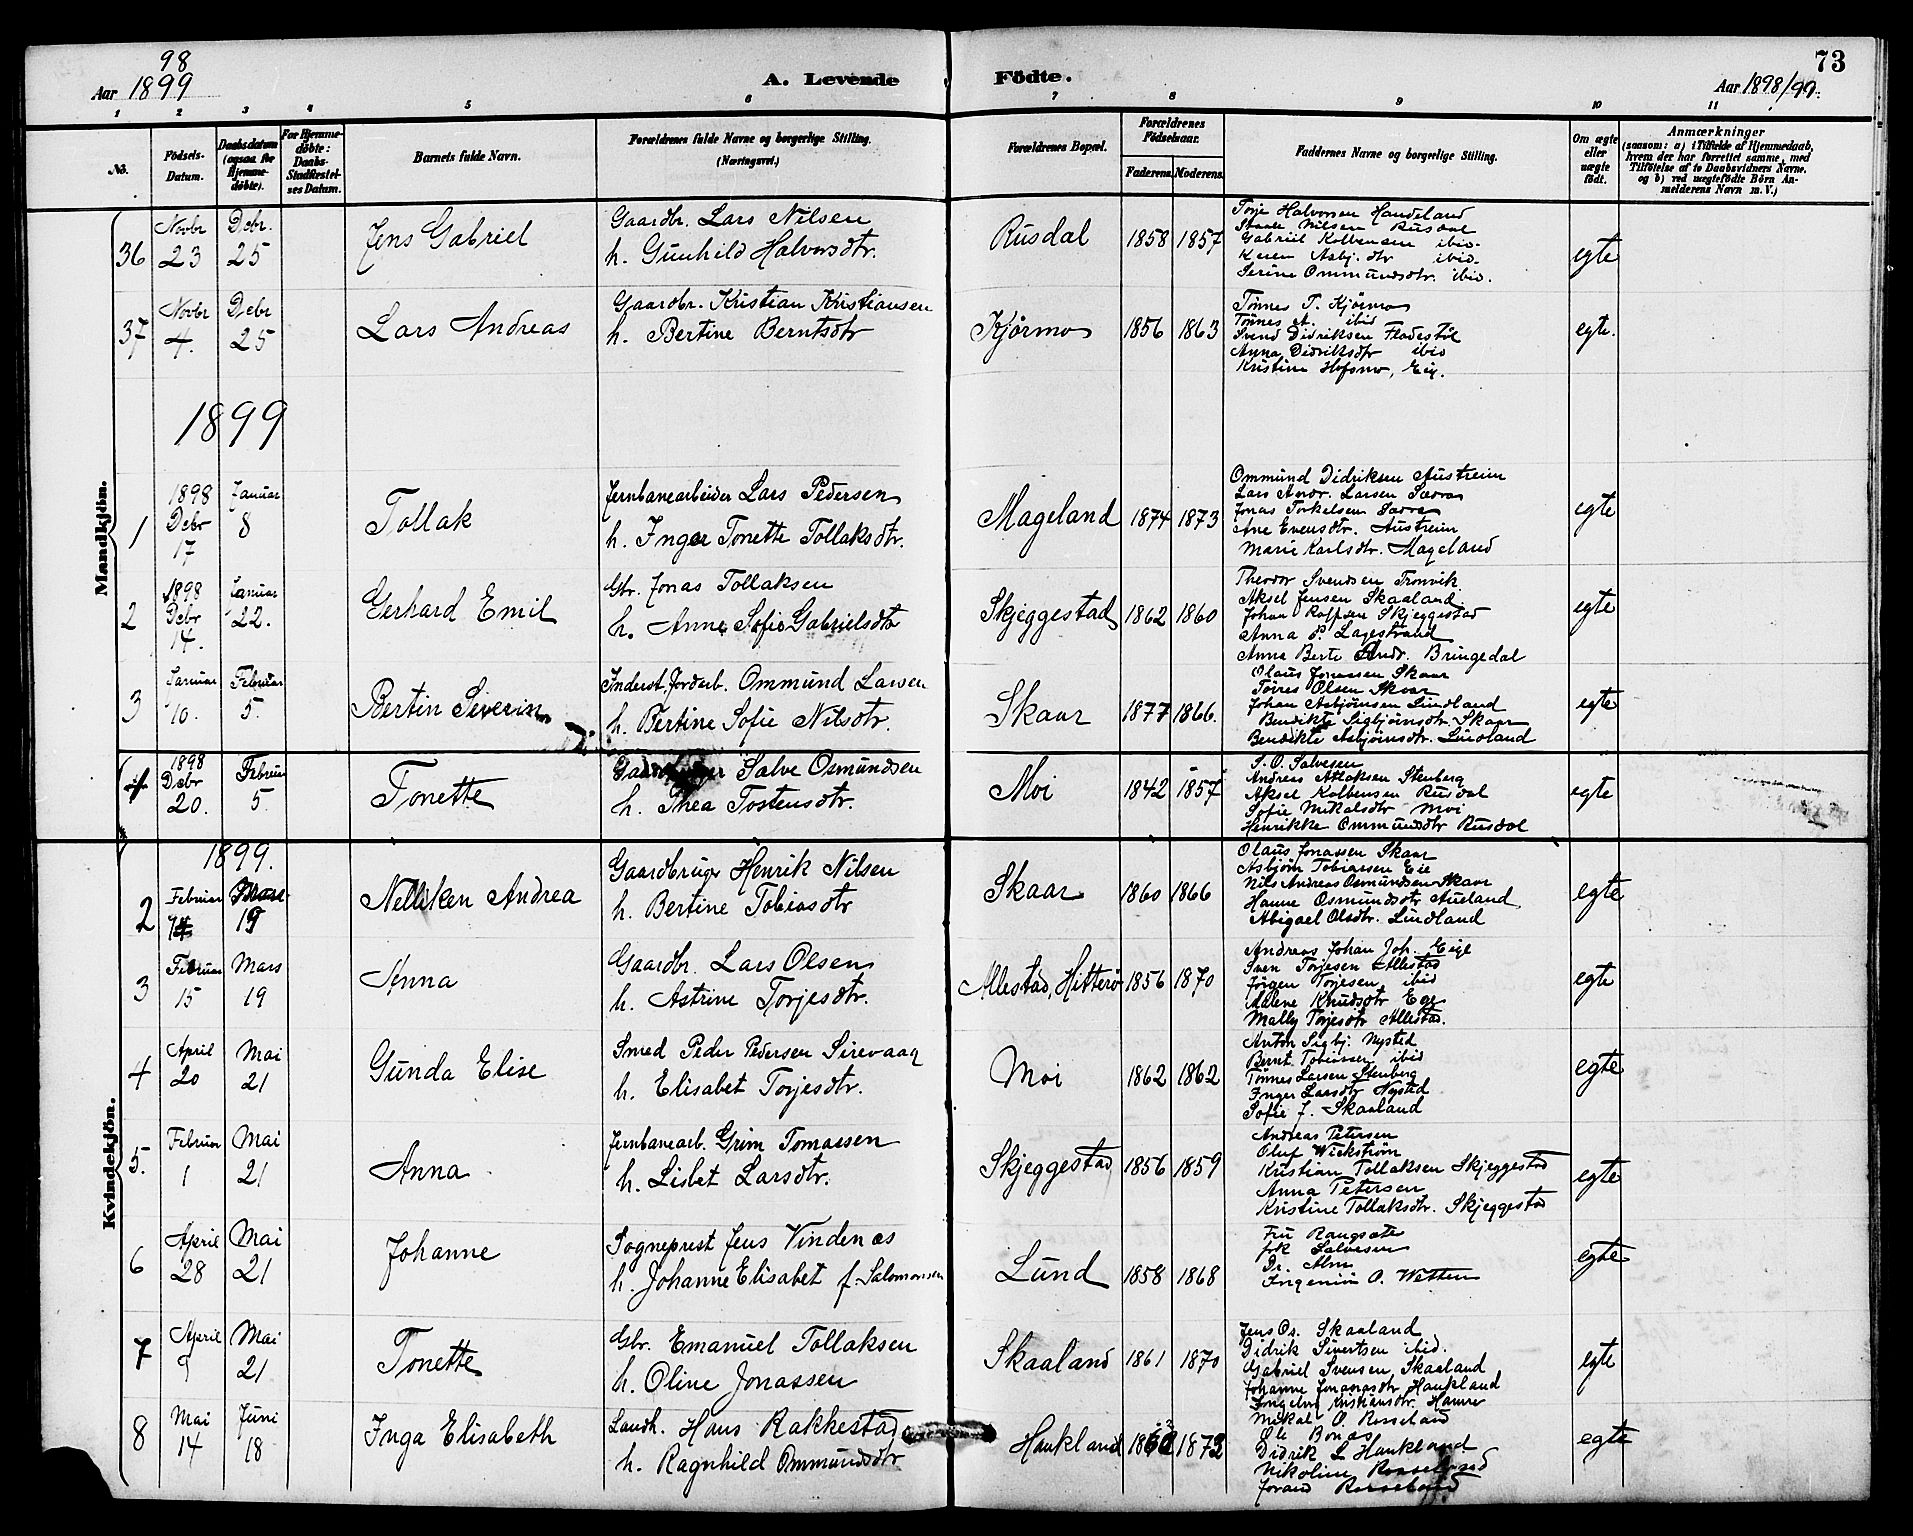 98
Aar 1899
A. Levende Födte.
73
Aar 1898/99.
1 2 3 4 5 6 7 8 9 10 11
No.
Födsels-Datum.
Daabsdatum (ogsaa for Hjemmedöbte).
For Hjemmedöbte: Daabs-Stadfæstelses Datum.
Barnets fulde Navn.
Forældrenes fulde Navne og borgerlige Stilling. (Næringsvei.)
Forældrenes Bopæl.
Forældrenes Födselsaar.
Faderens. Moderens.
Faddernes Navne og borgerlige Stilling.
Om ægte eller uægte födt.
Anmærkninger
(saasom: a) i Tilfælde af Hjemmedaab, hvem der har forrettet samme, med Tilföielse af to Daabsvidners Navne, og b) ved uægtefödte Börn Anmelderens Navn m. V.)
Mandkjön.
36 Novbr 23 Debr. 25 Jens Gabriel
Gaardbr. Lars Nilsen
h. Gunhild Halvorsdtr.
Rusdal 1858 1857
Torje Halvorsen Handeland
Staale Nilsen Rusdal
Gabriel Kolbensen ibid.
Karen Asbj. dtr ibid.
Serine Ommundsdtr. ibid.
egte
37 Novbr 4. Debr 25 Lars Andreas
Gaardbr. Kristian Kristiansen
h. Bertine Berntsdtr
Kjørmo 1856 1863
Tønnes T. Kjørmo
Tønnes A. ibid
Svend Didriksen Fladestøl
Anna Didriksdtr ibid
Kristine Hofsmo, Eig.
egte.
1899
1 1898 Debr 17 Januar 8 Tollak
Jernbanearbeider Lars Pedersen
h. Inger Tonette Tollaksdtr.
Mageland 1874 1873
Ommund Didriksen Austreim
Lars Andr. Larsen Sævra
Jonas Torkelsen Sævra
Ane Evensdtr. Austreim
Marie Karlsdtr. Mageland
egte
2 1898 Debr 14. Januar 22. Gerhard Emil
Gbr. Jonas Tollaksen
h. Anne Sofie Gabrielsdtr
Skjeggestad 1862 1860
Theodor Svendsen Tronvik
Aksel Jensen Skaaland
Johan Roffsen Skjeggestad
Anna P. Lagestrand
Anna Berte Andr. Bringedal
egte
3 Januar 10. Februar 5. Bertin Severin
Inderst. Jordarb. Ommund Larsen
h. Bertine Sofie Nilsdtr.
Skaar 1877 1866.
Olaus Jonassen Skaar
Tørres Olsen Skaar
Johan Asbjørnsen Lindland
Bendikte Sigbjørnsdtr. Skaar
Bendikte Asbjørnsdtr. Lindland
egte
1 1898 Debr 20. Februar 5. Tonette
Gaardbruger Salve Osmundsen
h. Thea Tostensdtr.
Moi 1842 1857
S. O. Salvesen
Andreas Atlaksen Stenberg
Aksel Kolbensen Rusdal
Sofie Mikalsdtr Moi
Henrikke Ommundsdtr Rusdal
egte
Kvindekjön.
1899.
2 Februar 14 Mars 19 Nelliken Andrea
Gaardbruger Henrik Nilsen
h. Bertine Tobiasdtr
Skaar 1860 1866
Olaus Jonassen Skaar
Asbjørn Tobiassen Eie
Nils Andreas Osmundsen Skaar
Hanne Osmundsdtr Aueland
Abigael Olsdtr. Lindland
egte
3 Februar 15 Mars 19 Anna
Gaardbr. Lars Olsen
h. Astrine Torjesdtr.
Allestad, Hitterø 1856 1870
Andreas Johan Joh. Eige
Sven Torjesen Allestad
Jørgen Torjesen ibid
Malene Knudsdtr Ege
Mally Torjesdtr Allestad.
egte
4 April 20 Mai 21 Gunda Elise
Smed Peder Pedersen Sirevaag
h. Elisabet Torjesdtr.
Moi 1862 1862
Anton Sigbj. Nysted
Bernt Tobiassen ibid
Tønnes Larsen Stenberg
Inger Larsdtr Nysted
Sofie J. Skaaland
egte
5. Februar 1 Mai 21 Anna
Jernbanearb. Grim Tomassen
h. Lisbet Larsdtr.
Skjeggestad 1856 1859
Andreas Petersen
Oluf Wickstrøm
Kristian Tollaksen Skjeggestad
Anna Petersen
Kristine Tollaksdtr. Skjeggestad
egte
6 April 28 Mai 21 Johanne
Sogneprest Jens Vindenæs
h. Johanne Elisabet f. Salomonsen
Lund 1858 1868
Fru Rangsæte
frk Salvesen
Dr. Alm
Ingeniør O. Wetten
egte
7 April 9 Mai 21 Tonette
Gbr. Emanuel Tollaksen
h. Oline Jonassen
Skaaland 1861 1870
Jens Os. Skaaland
Didrik Sivertsen ibid.
Gabriel Svensen Skaaland
Johanne Jonasdtr Haukland
Ingeborg Kristiansdtr. Hamre
egte
8 Mai 14 Juni 18 Inga Elisabeth
Landh. Hans Rakkestad
h. Ragnhild Ommundsdtr
Haukland 1862 1873
Mikal O. Rosseland
Ole Bonæs
Didrik L Haukland
Nikoline Rosseland
Jorand Rosseland
egte